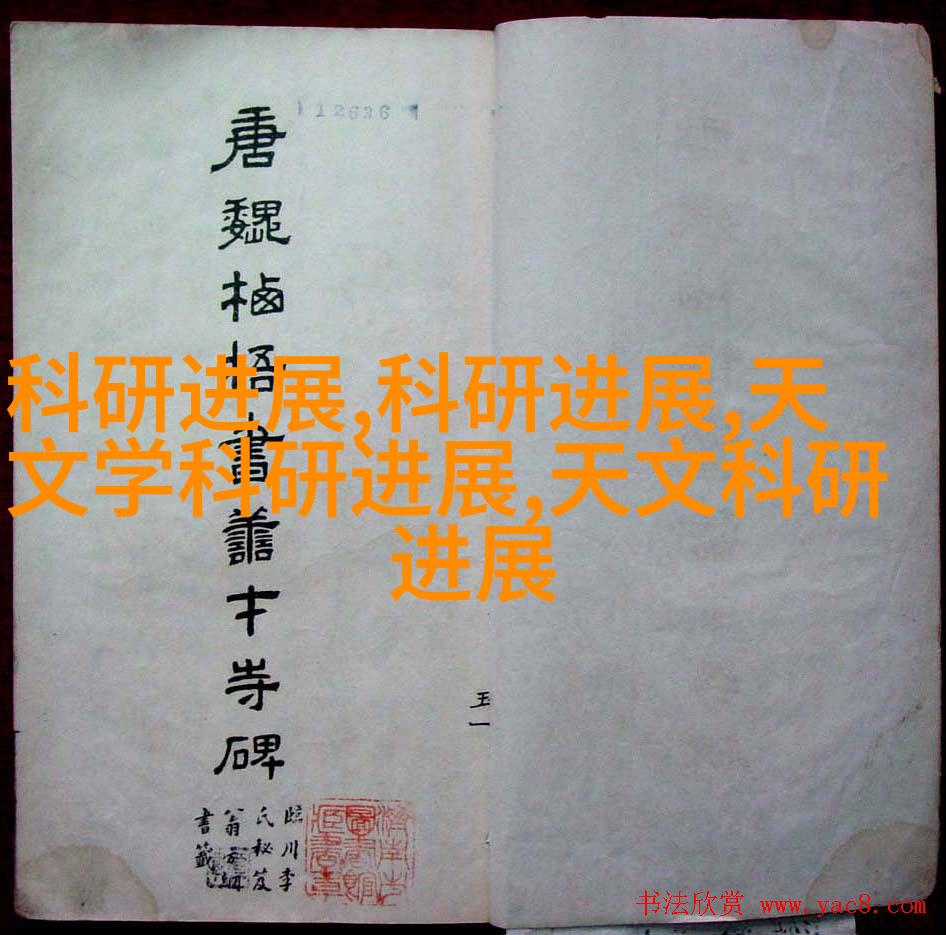 12636
唐魏栖梧書善才寺碑
臨川李
氏秘笈
翁方綱
書籤
王一
科研进展,科研进展,天
文学科研进展,天文科研
进展
书法欣赏 www.yac8.com